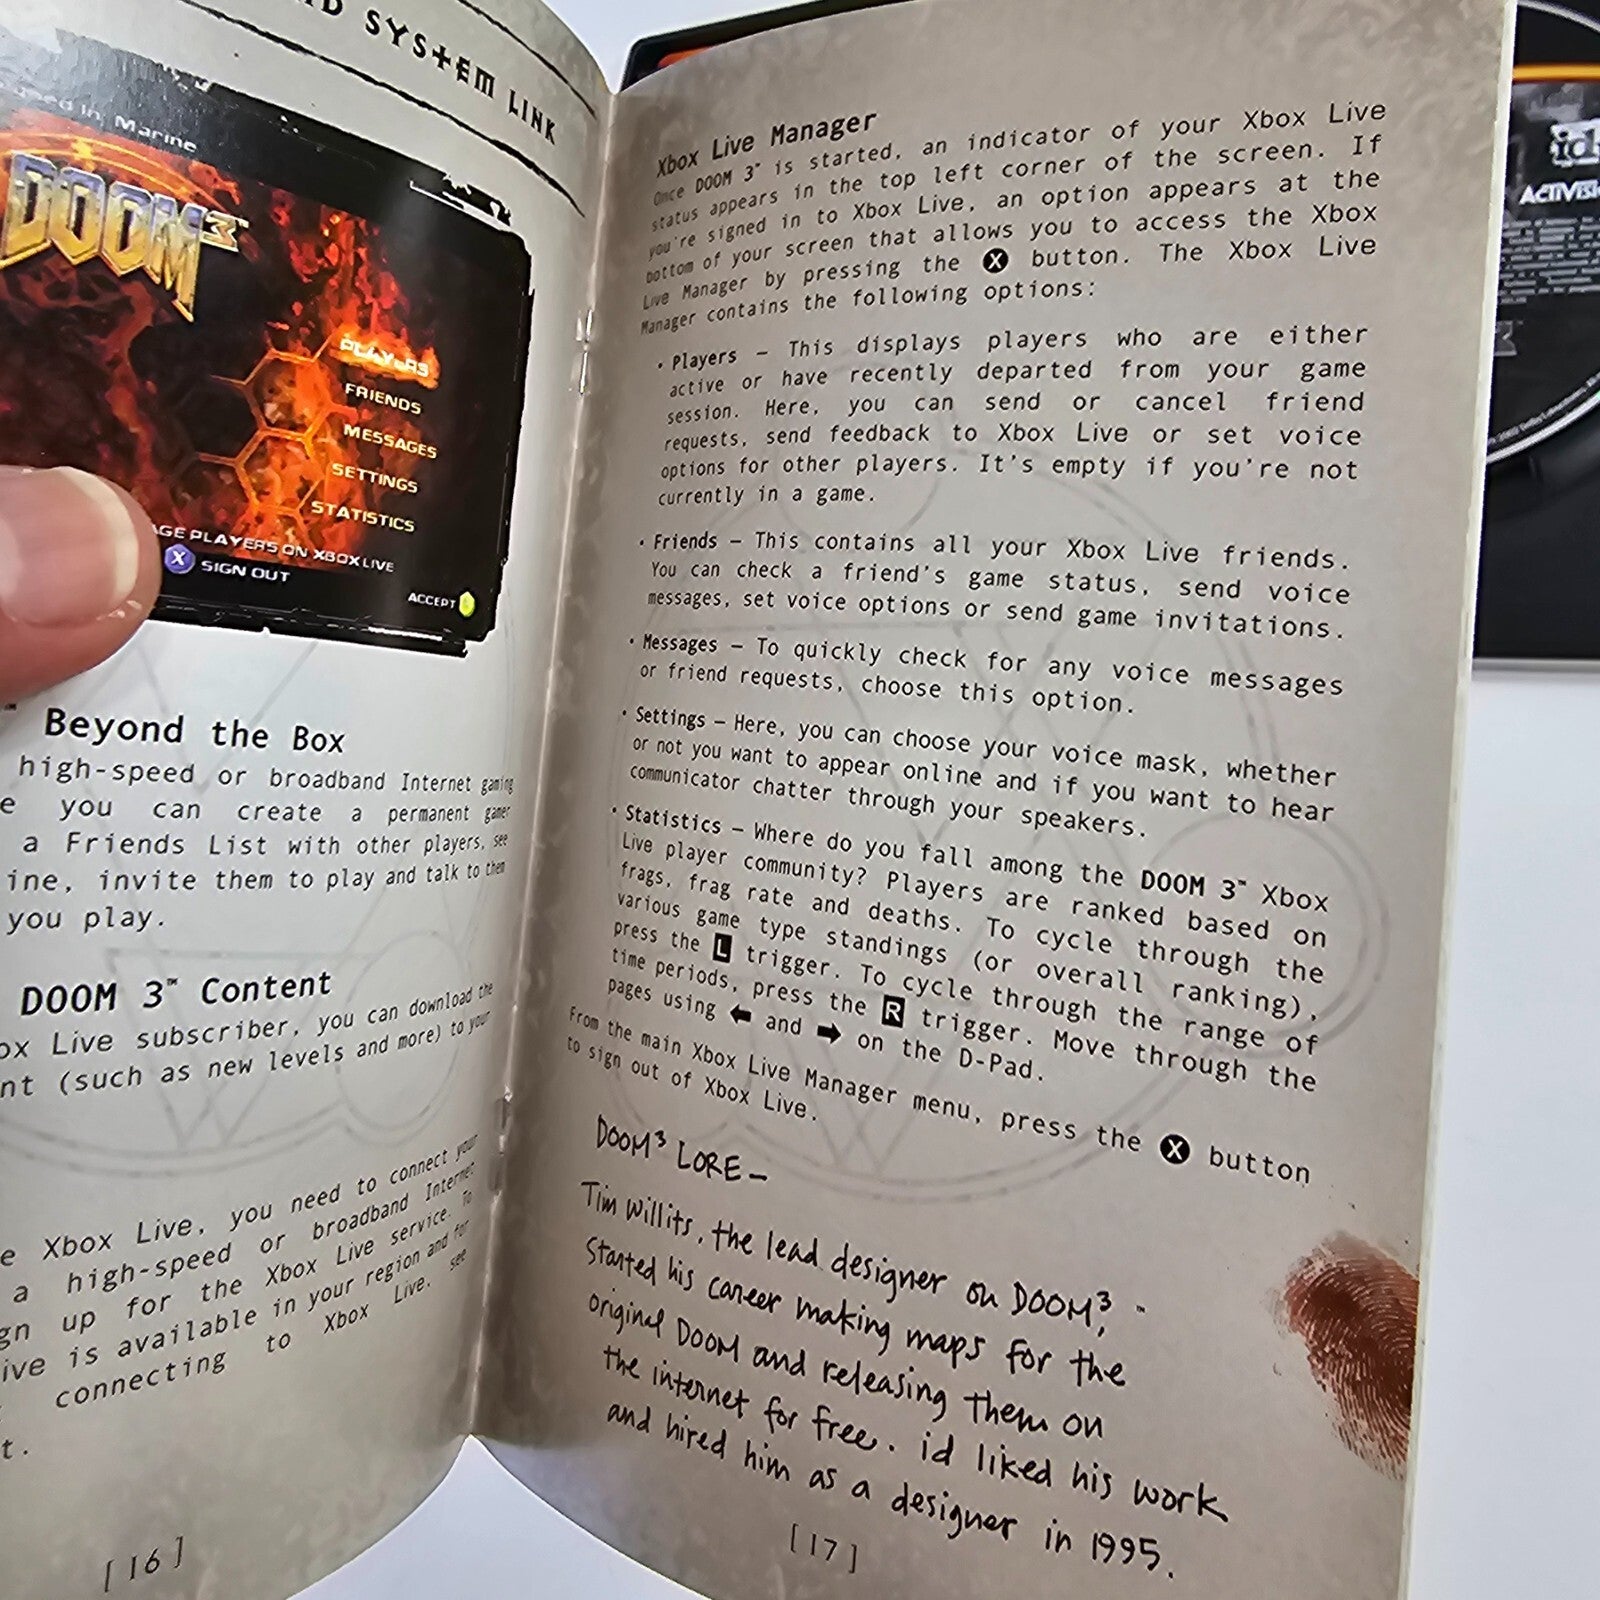 SYSTEM LINK
Marine
DOOM 3
PLAYERS
FRIENDS
MESSAGES
SETTINGS
STATISTICS
PLAYERS ON XBOX LIVE
X SIGN OUT
ACCEPT
Beyond the Box
high-speed or broadband Internet gaming
you can create a permanent gamer
a Friends List with other players, see
invite them to play and talk to them
you play.
DOOM 3™ Content
Live subscriber, you can download the
(such as new levels and more) to your
Xbox Live, you need to connect your
a high-speed or broadband Internet
up for the Xbox Live service. To
is available in your region and for
connecting to Xbox Live, see
[16]
Xbox Live Manager
Once DOOM 3™ is started, an indicator of your Xbox Live
status appears in the top left corner of the screen. If
you're signed in to Xbox Live, an option appears at the
bottom of your screen that allows you to access the Xbox
Live Manager by pressing the X button. The Xbox Live
Manager contains the following options:
• Players – This displays players who are either
active or have recently departed from your game
session. Here, you can send or cancel friend
requests, send feedback to Xbox Live or set voice
options for other players. It's empty if you're not
currently in a game.
• Friends – This contains all your Xbox Live friends.
You can check a friend's game status, send voice
messages, set voice options or send game invitations.
• Messages – To quickly check for any voice messages
or friend requests, choose this option.
• Settings – Here, you can choose your voice mask, whether
or not you want to appear online and if you want to hear
communicator chatter through your speakers.
• Statistics – Where do you fall among the DOOM 3™ Xbox
Live player community? Players are ranked based on
frags, frag rate and deaths. To cycle through the
various game type standings (or overall ranking),
press the L trigger. To cycle through the range of
time periods, press the R trigger. Move through the
pages using ← and → on the D-Pad.
From the main Xbox Live Manager menu, press the X button
to sign out of Xbox Live.
DOOM³ LORE –
Tim Willits, the lead designer on DOOM³,
started his career making maps for the
original DOOM and releasing them on
the internet for free. id liked his work
and hired him as a designer in 1995.
[17]
id